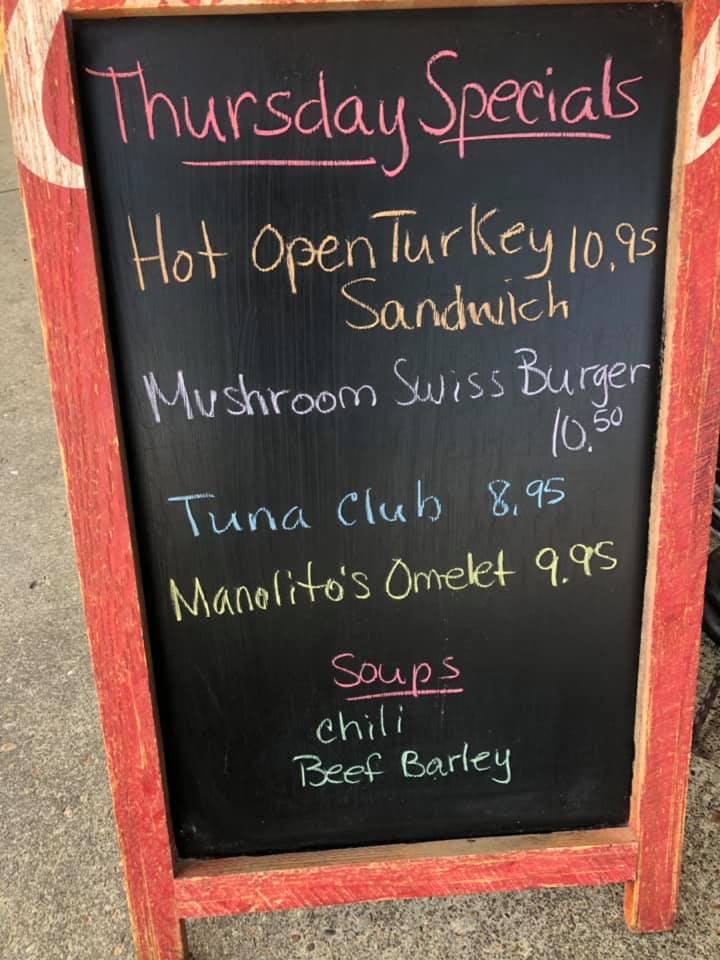 Thursday Specials
Hot Open Turkey 10.95
Sandwich
Mushroom Swiss Burger
10.50
Tuna Club 8.95
Manolito's Omelet 9.95
Soups
chili
Beef Barley